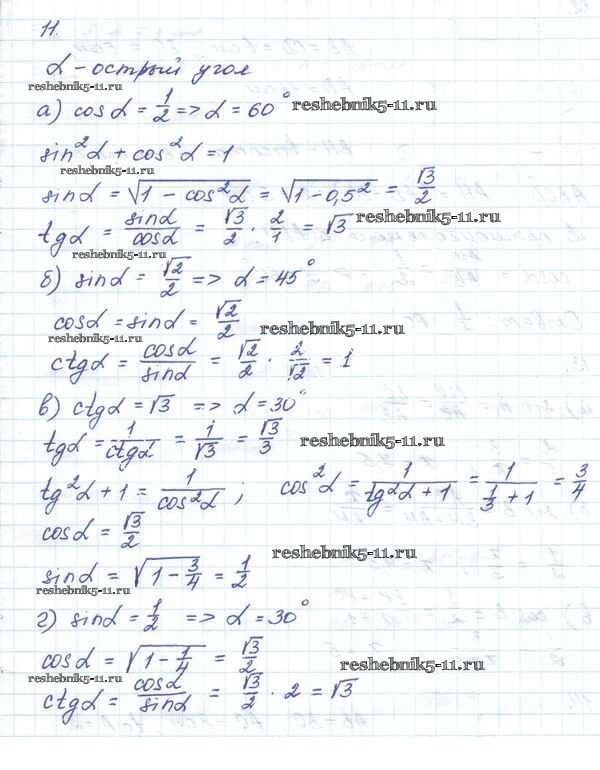 11.
α - острый угол
reshebnik5-11.ru
а) cos α = 1/2 => α = 60° reshebnik5-11.ru
sin²α + cos²α = 1
reshebnik5-11.ru
sin α = √(1 - cos²α) = √(1 - 0,5²) = √3/2
tg α = sin α/cos α = √3/2 · 2/1 = √3 reshebnik5-11.ru
reshebnik5-11.ru
б) sin α = √2/2 => α = 45°
cos α = sin α = √2/2 reshebnik5-11.ru
reshebnik5-11.ru
ctg α = cos α/sin α = √2/2 · 2/√2 = 1
в) ctg α = √3 => α = 30°
tg α = 1/ctg α = 1/√3 = √3/3 reshebnik5-11.ru
tg²α + 1 = 1/cos²α ; cos²α = 1/(tg²α + 1) = 1/(1/3 + 1) = 3/4
cos α = √3/2
reshebnik5-11.ru
sin α = √(1 - 3/4) = 1/2
reshebnik5-11.ru
г) sin α = 1/2 => α = 30°
cos α = √(1 - 1/4) = √3/2 reshebnik5-11.ru
reshebnik5-11.ru
ctg α = cos α/sin α = √3/2 · 2 = √3